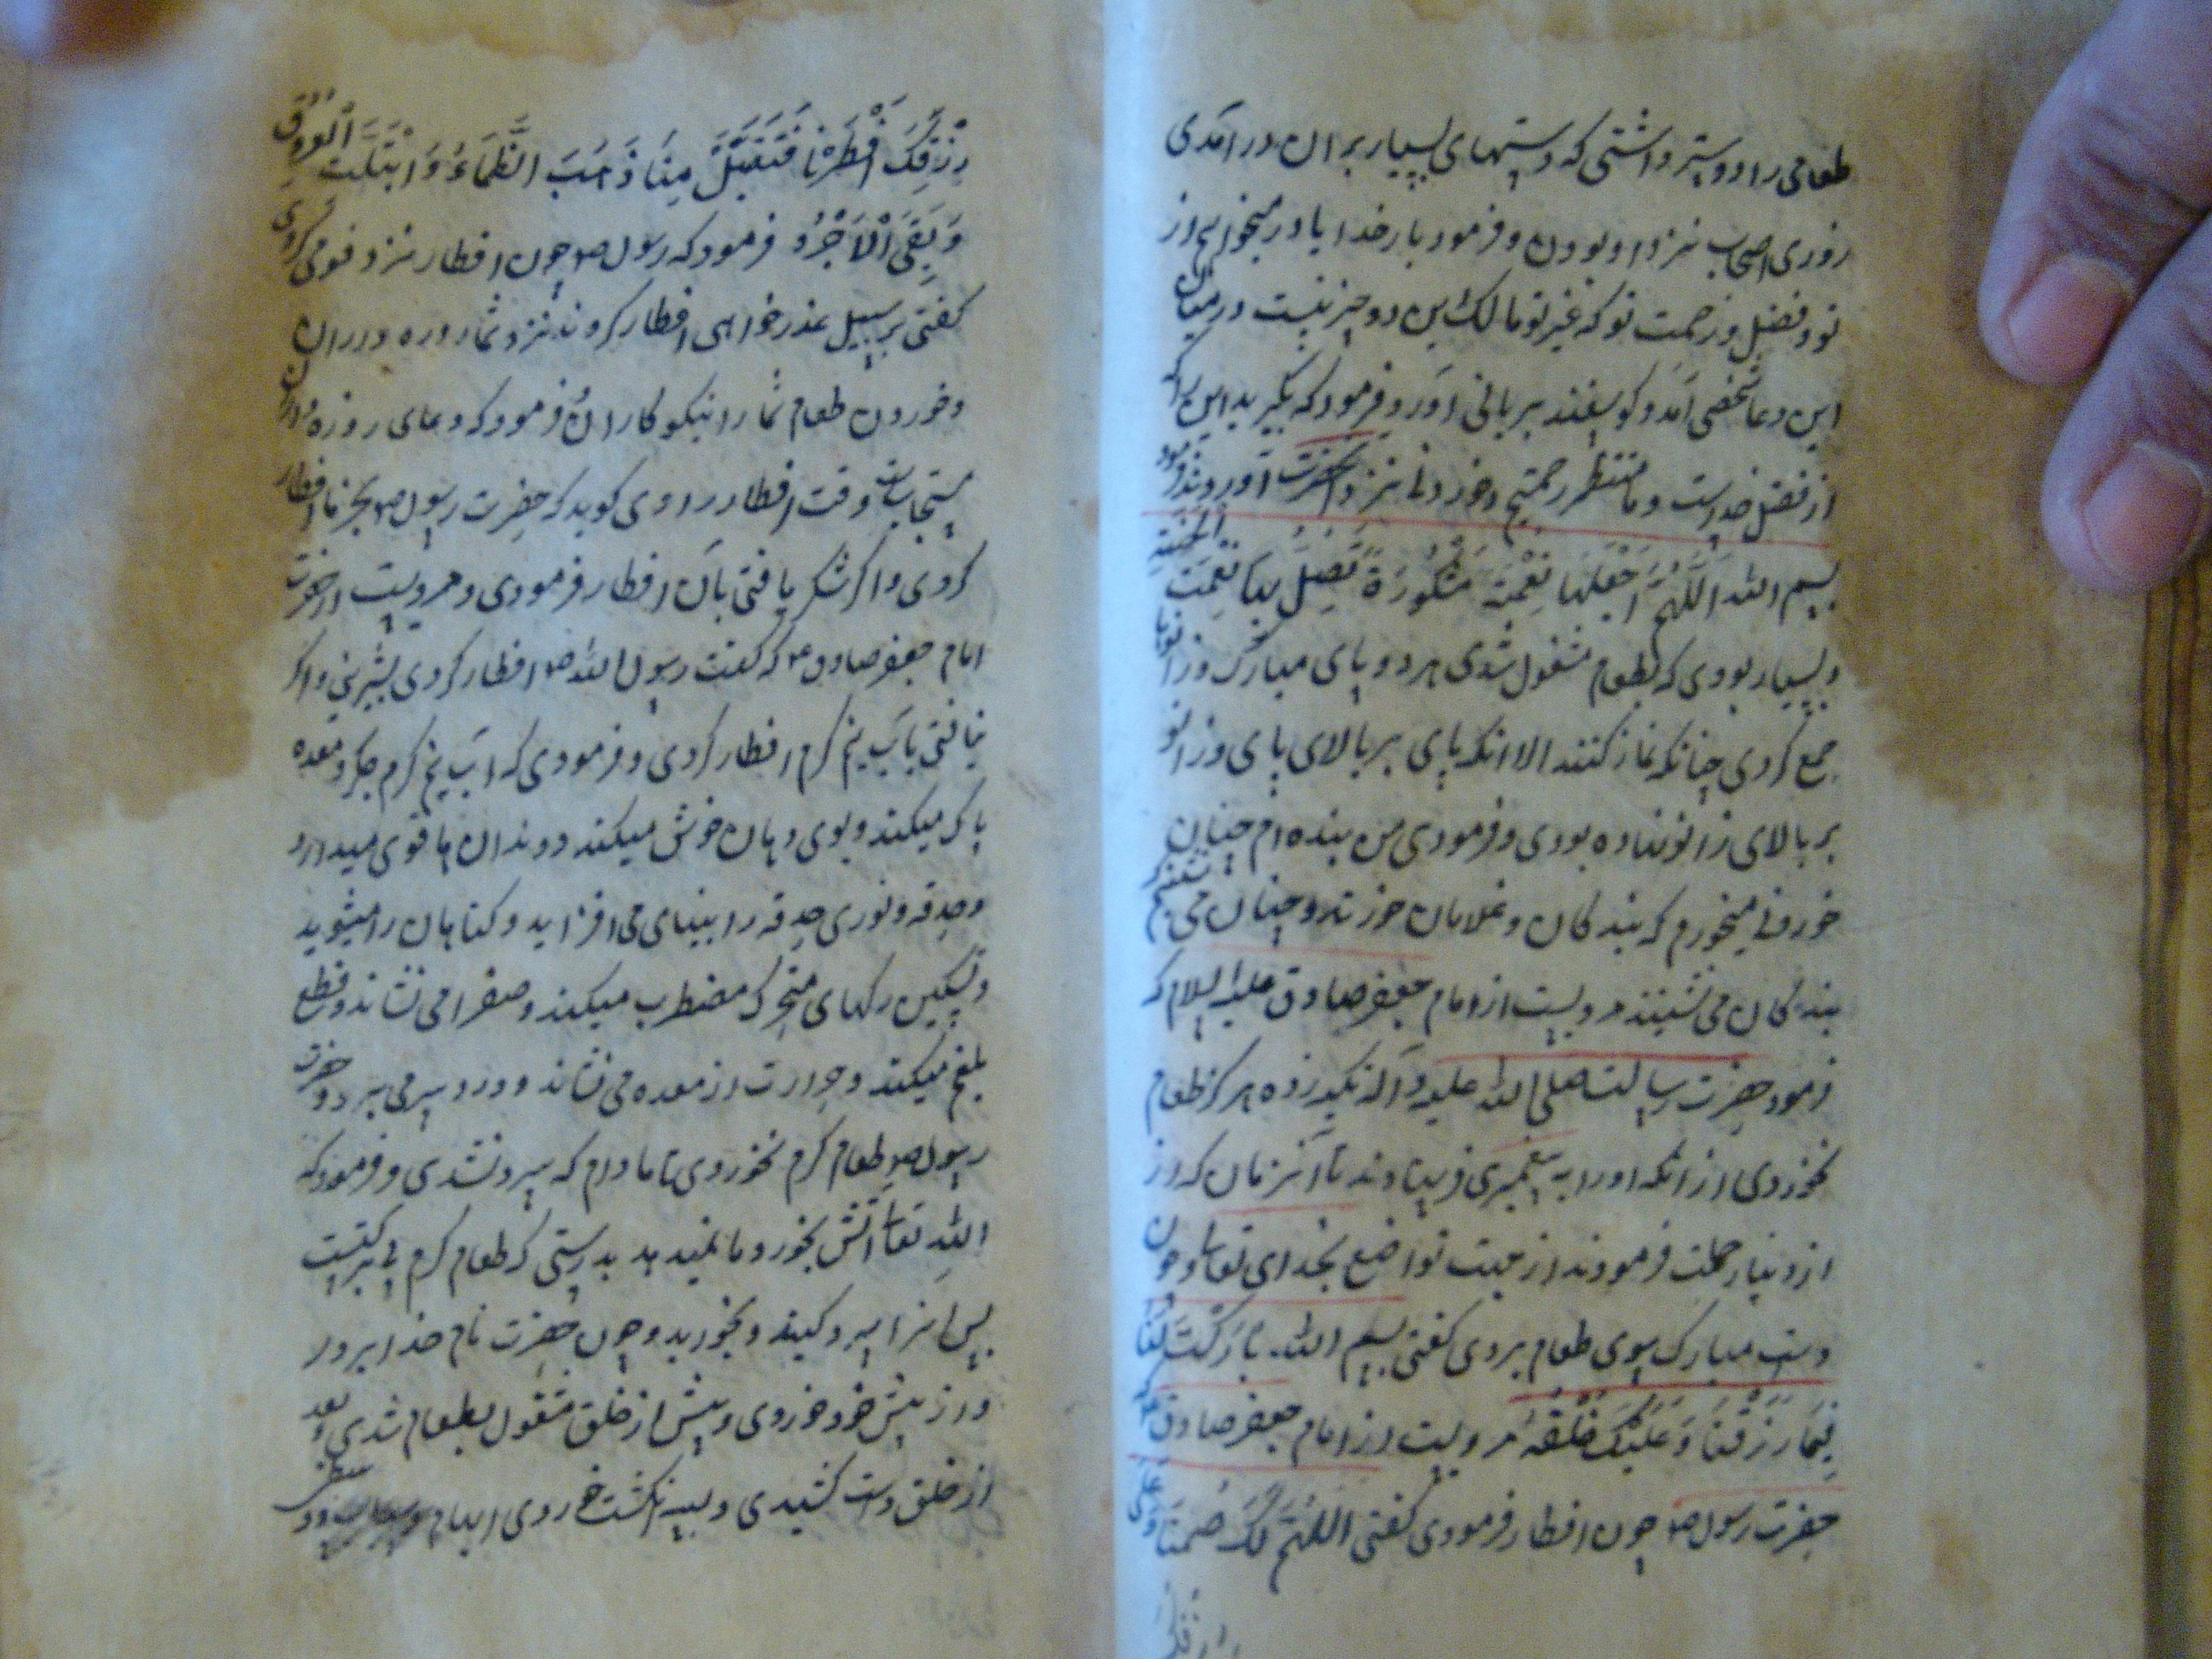 طعامی را دوستر داشتی که دستهای بسیار بر ان در امدی
روزی اصحاب نزد او بودن و فرمود بار خدایا درمیخواهم از
تو و فضل و رحمت تو که غیر تو مالک این دو چیز نیست در میان
این دعا شخصی آمد و کوسفند بریانی آورد فرمود که بکیرید این را که
از فضل خداست و ما منتظر رحمتیم و نزد انحضرت آوردند فرمود
بسم الله اللهم اجعلها نعمة مشکورة تصل بها نعمت الجنة
و بسیار بودی که بطعام مشغول شدی هر دو پای مبارک و زانو را
جمع کردی چنانکه نماز کنند الا انکه پای بر بالای پای و زانو
بر بالای زانو نهاده بودی و فرمودی من بنده ام چنان
خوردنی میخورم که بندکان و غلامان خورند و چنان می نشینم که
بندکان می نشینند مرویست از امام جعفر صادق علیه السلام که
فرمود حضرت رسالت صلی الله علیه و آله تکیه زده هرکز طعام
نخوردی از آنکه او را به پیغمبری فرستادند تا آنزمان که از
از دنیا رحلت فرمودند از جهت تواضع بخدای تعالی و چون
دست مبارک سوی طعام بردی کفتی بسم الله بارکت لنا
فیما رزقتنا و علیک خلفه مرویست از امام جعفر صادق که
حضرت رسول ص چون افطار فرمودی کفتی اللهم لک صمنا و علی
رزقک
رزقک افطرنا فتقبل منا ذهب الظماء و ابتلت العروق
و بقی الاجر و فرمود که رسول ص چون افطار نزد قومی کردی
کفتی بر سبیل عذرخواهی افطار کردند نزد شما روزه داران
و خوردن طعام شما را نیکوکاران فرمود که دعای روزه داران
مستجابست وقت افطار راوی کوید که حضرت رسول ص بخرما افطار
کردی و اکر شکر یافتی بآن افطار فرمودی و مرویست از حضرت
امام جعفر صادق ع که کفت رسول الله ص افطار کردی بشیرینی و اکر
نیافتی بآب نیم کرم افطار کردی و فرمودی که آب نیم کرم جکر و معده
پاک میکند و بوی دهان خوش میکند و دندان ها قوی میدارد
و حدقه و نوری حدقه را بینای می افزاید و کناهان را میشوید
و تسکین رکهای متحرک مضطرب میکند و صفرا می نشاند و قطع
بلغم میکند و حرارت از معده می نشاند و درد سر می برد و حضرت
رسول ص طعام کرم نخوردی تا مادام که سرد نشدی و فرمود که
الله تعالی آتش بخورد ما نمیدهد بدرستی که طعام کرم بی برکتست
پس آنرا سرد کنید و بخورید و چون حضرت نام خدا بردی
و از پیش خود خوردی و پیش از خلق مشغول بطعام شدی و بعد
از خلق دست کشیدی و بسه انکشت خوردی ابهام